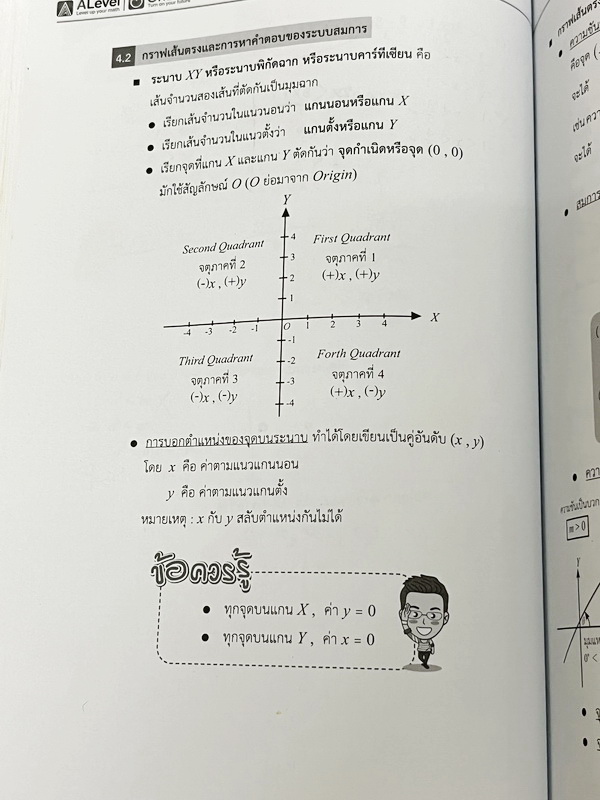 ALevel
Level up your math
Turn on your future
4.2 กราฟเส้นตรงและการหาคำตอบของระบบสมการ
■ ระนาบ XY หรือระนาบพิกัดฉาก หรือระนาบคาร์ทีเซียน คือ
เส้นจำนวนสองเส้นที่ตัดกันเป็นมุมฉาก
● เรียกเส้นจำนวนในแนวนอนว่า แกนนอนหรือแกน X
● เรียกเส้นจำนวนในแนวตั้งว่า แกนตั้งหรือแกน Y
● เรียกจุดที่แกน X และแกน Y ตัดกันว่า จุดกำเนิดหรือจุด (0 , 0)
มักใช้สัญลักษณ์ O (O ย่อมาจาก Origin)
Y
4
3
2
1
Second Quadrant
จตุภาคที่ 2
(-)x , (+)y
First Quadrant
จตุภาคที่ 1
(+)x , (+)y
-4 -3 -2 -1 O 1 2 3 4 X
-1
-2
-3
-4
Third Quadrant
จตุภาคที่ 3
(-)x , (-)y
Forth Quadrant
จตุภาคที่ 4
(+)x , (-)y
● การบอกตำแหน่งของจุดบนระนาบ ทำได้โดยเขียนเป็นคู่อันดับ (x , y)
โดย x คือ ค่าตามแนวแกนนอน
y คือ ค่าตามแนวแกนตั้ง
หมายเหตุ : x กับ y สลับตำแหน่งกันไม่ได้
ข้อควรรู้
● ทุกจุดบนแกน X , ค่า y = 0
● ทุกจุดบนแกน Y , ค่า x = 0
● กราฟเส้นตร
● ความชัน
คือจุด (
จะได้
เช่น ความ
จะได้
● สมการ
● ควา
ความชันเป็นบวก
m > 0
Y
0° <